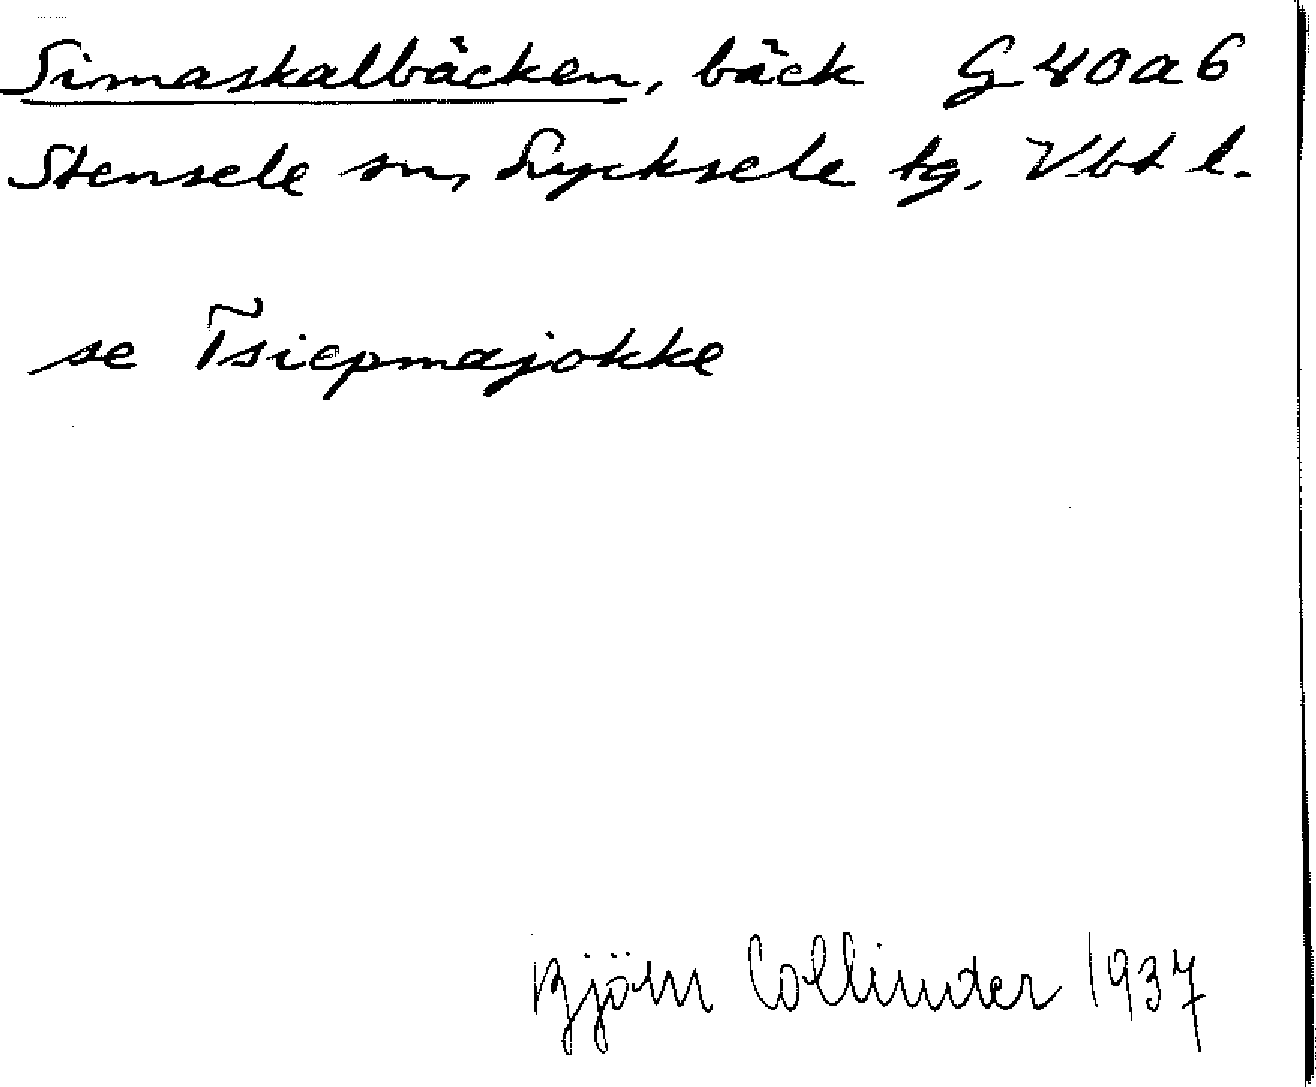 Simaskalbäcken, bäck G 40a6
Stensele sn, Lycksele tg. Vbt l.
se Tsiepmajokke
Björn Collinder 1937